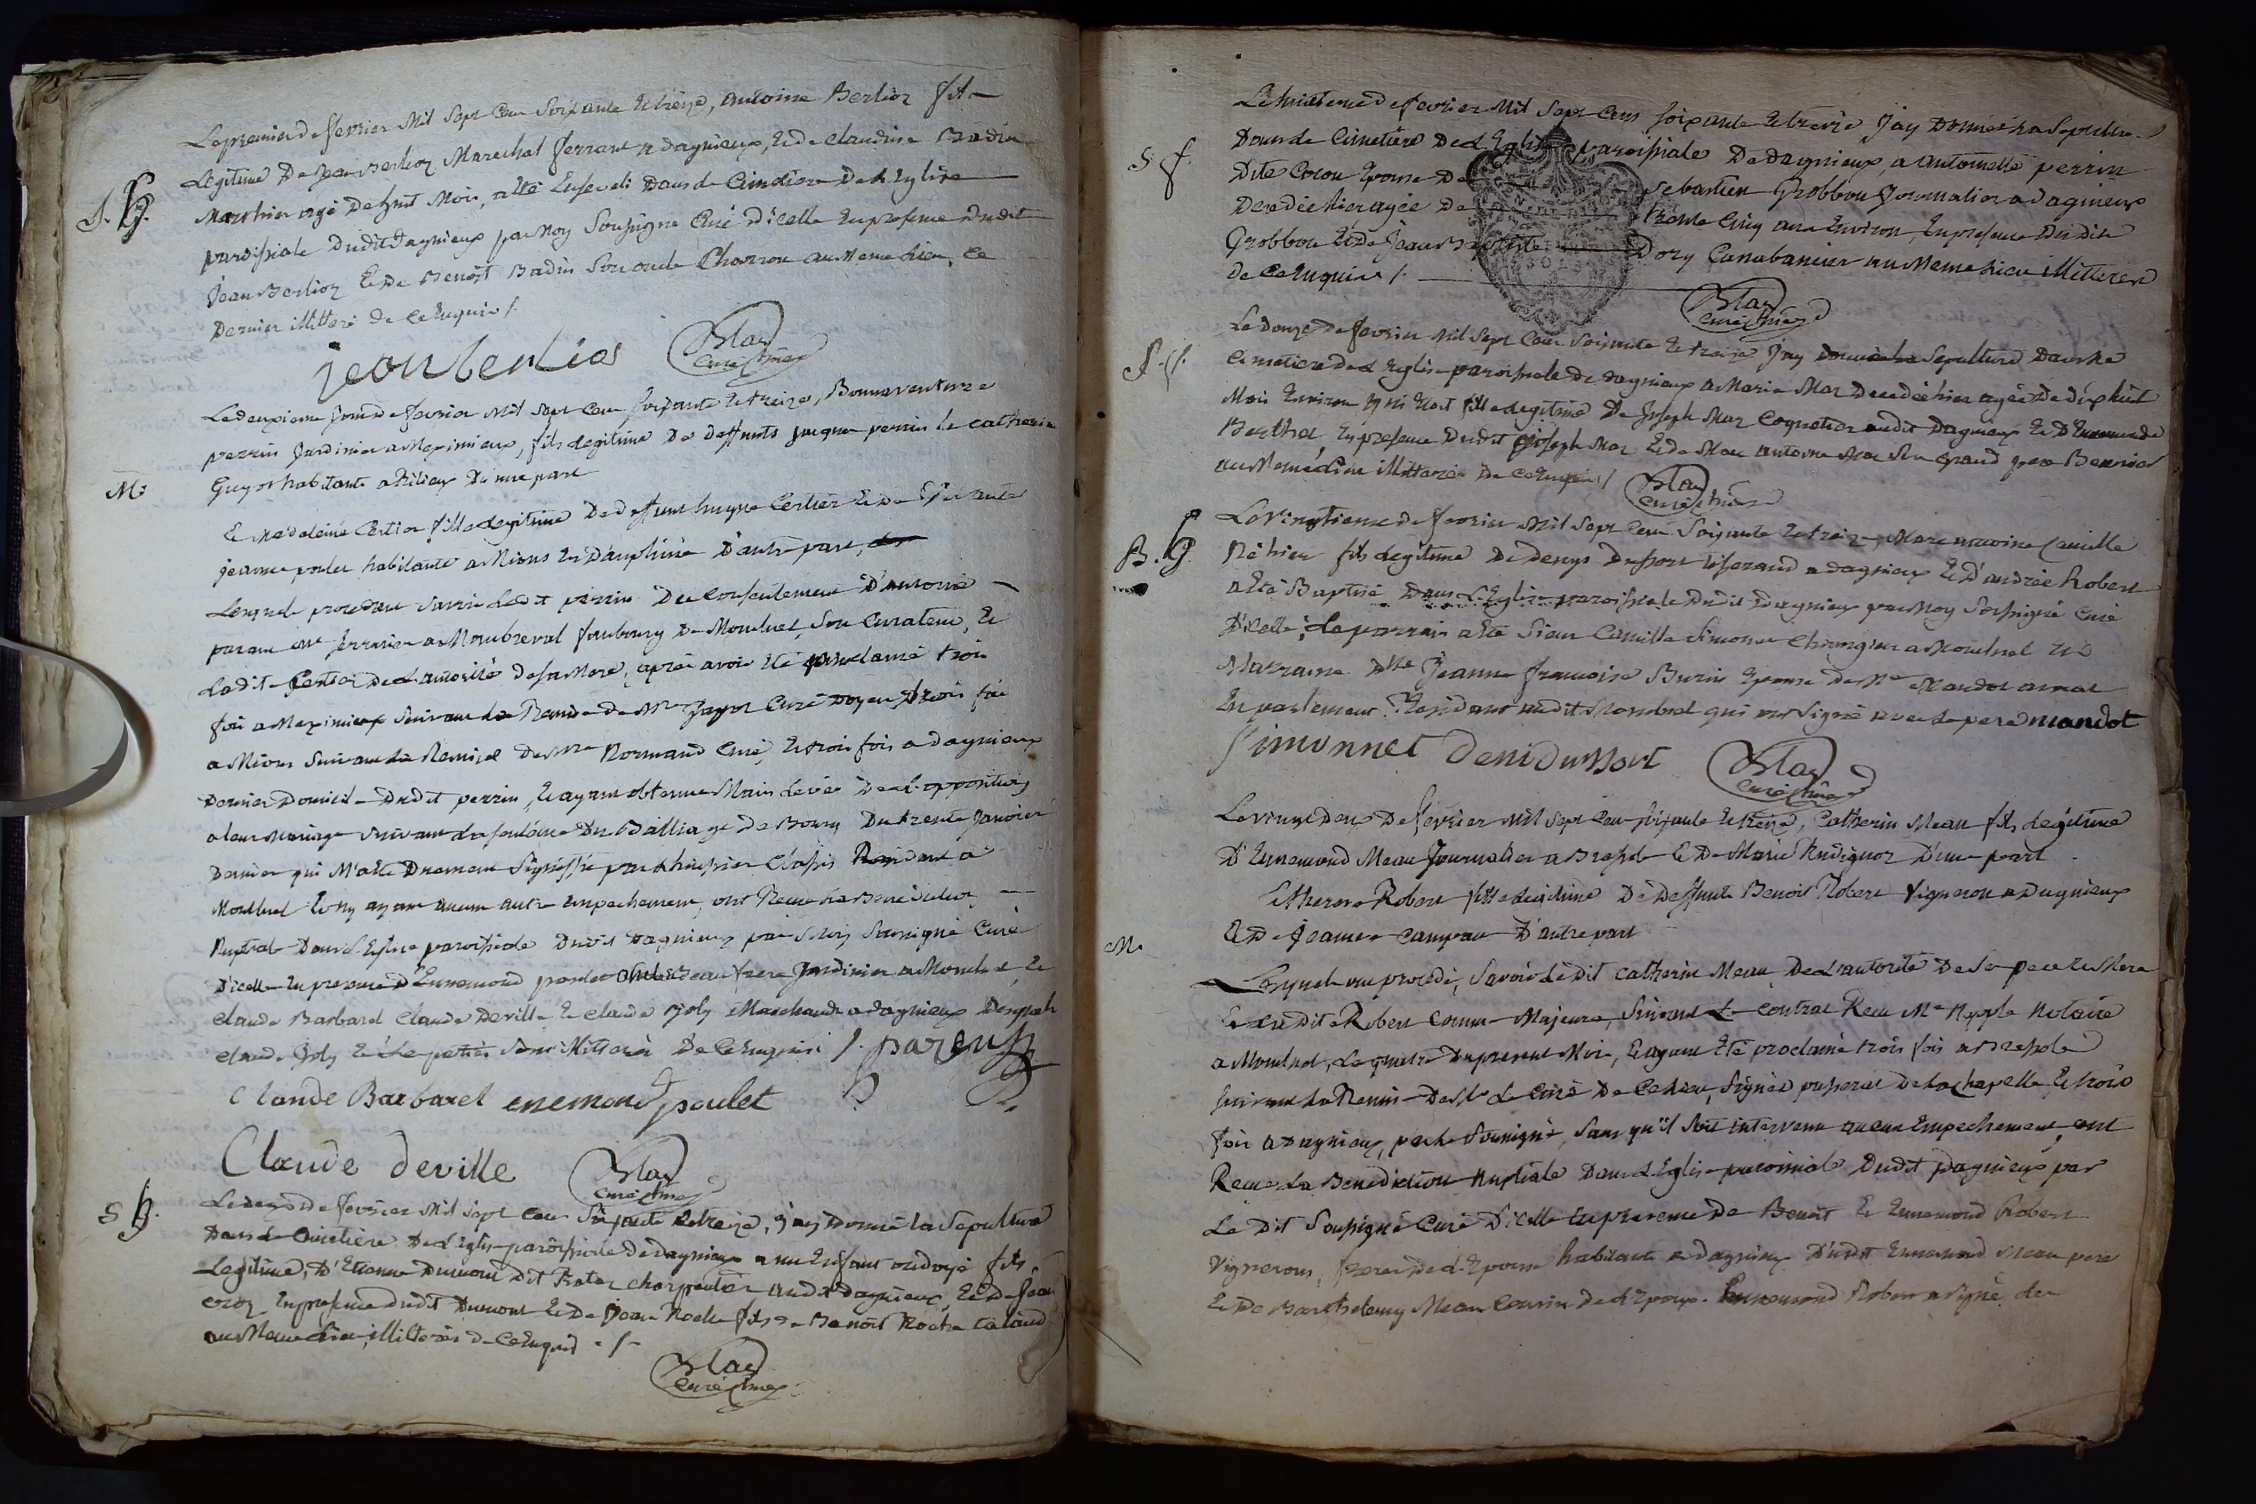 Le premier de fevrier Mil Sept Cent Soixante et treize, antoine Berlioz fils
Legitime De jean Berlioz Marechal ferrant a dagnieux, et de claudine Badin
S. h.
agé De huit Mois, a eté Enseveli Dans le Cimetiere De l'Eglise
paroissiale Dudit Dagnieux par Moy Soussigné Curé d'icelle En presence Dudit
Jean Berlioz et De Benoit Badin Son oncle Charron au Meme Lieu, Ce
Dernier illitteré De Ce Enquis /.
jean berlios
Blay
curé
Le deuxieme jour de fevrier Mil Sept Cent Soixante et treize, Bonnaventure
perrin Jardinier a Meximieux, fils legitime De Deffunts jacque perrin et catherine
M.
Guyot habitante a Rilieux D'une part
Et Madeleine Certier fille legitime De deffunt hugue Certier et De
jeanne poulet habitante a Mions En Dauphiné D'autre part,
Lesquels procedant Savoir Ledit perrin Du Consentement D'antoine
parant a Montbreval faubourg De Montluel, Son Curateur, et
Ladite Certier De L'autorité De sa Mere, aprés avoir eté proclamé trois
fois a Meximieux Suivant La Remise de Mr Jayot Curé Doyen trois fois
a Mions Suivant La Remise De Mre Normand Curé, et trois fois a dagnieux
Dernier Domicile Dudit perrin, et ayant obtenu Main levée De l'opposition
a leur Mariage Suivant La Sentence Du Balliage De Bourg Du trente Janvier
Dernier qui M'a eté Duement Signiffié par L'huissier Classis Residant a
Montluel et n'y ayant aucun autre Empechement, ont Receu La Benediction
Nuptiale Dans L'Eglise paroissiale Dudit Dagnieux par Moy Soussigné Curé
D'icelle En presence D'Ennemond poulet Beau frere Jardinier a Montluel et
claude Barbaret Claude Deville et claude Joly Marchands a dagnieux Desquels
claude Joly et Les parties Sont illitterés De Ce Enquis /. parent
Claude Barbaret enemond poulet
Claude deville
Blay
curé
S h.
Le dix De fevrier Mil Sept Cent Soixante et treize, j'ay Donné la Sepulture
Dans Le Cimetiere De L'Eglise paroissiale De dagnieux a un Enfant ondoyé fils
Legitime, D'Etienne Dumont Dit charpentier audit dagnieux, et De Jeanne
En presence dudit Dumont et De Jean Roche fils De Benoit Roche
au Meme Lieu, illitterés de Ce Enquis . /.
Blay
curé
Le huitieme de fevrier Mil Sept Cent soixante et treize J'ay Donné La Sepulture
S f.
Dans le Cimetiere De L'Eglise paroissiale De Dagnieux, a antoinette perrin
Dite Coron Epouse De Sebastien Grobbon Journalier a dagnieux
Decedée hier agée De trente Cinq ans Environ, En presence Dudit
Grobbon et De Jean Baptiste Dory Canabassier au Meme Lieu illitterés
de Ce Enquis /.
Blay
curé
Le Douze De fevrier Mil Sept Cent Soixante et treize J'ay Donné La Sepulture Dans Le
S. f.
Cimetiere De L'Eglise paroissiale De dagnieux a Marie Mas Decedée hier agée De dix huit
Mois Environ fille legitime De Joseph Mas Coquetier audit Dagnieux et
Berthet, En presence Dudit Joseph Mas et De Marc antoine Mas Son Grand pere
au Meme Lieu illitterés De Ce Enquis /
Blay
curé
Le vingtieme de fevrier Mil Sept Cent Soixante et treize, Marc antoine Camille
B. h.
Né hier fils legitime De Denys Dussort tisserand a dagnieux et D'andrée Robert
a eté Baptisé Dans L'Eglise paroissiale Dudit Dagnieux par Moy Soussigné Curé
D'icelle; Le parrain a eté Sieur Camille Simonet Chirurgien a Montluel et
Marraine Dlle Jeanne francoise Burin Epouse De Mre Mandot avocat
En parlement Residant audit Montluel qui ont Signé avec Le pere mandot
Simonnet Deni dussort
Blay
curé
Le vingt Deux De fevrier Mil Sept Cent Soixante et treize, Catherin Mean fils legitime
D'Ennemond Meau Journalier a Bressole et De Marie D'une part
Et therese Robert fille legitime De Deffunt Benoit Robert Vigneron a Dagnieux
M.
Et De Jeanne D'autre part
Lesquels ont procedé, Savoir Ledit Catherin Meau De L'autorité De Ses pere et Mere
et Ladite Robert Comme Majeure, Suivant Le Contrat Receu Me Nepple Notaire
a Montluel, Le quatre Du present Mois, et ayant Eté proclamé trois fois a Bressole
Suivant La Remise De Mr Le Curé De Ce Lieu, Signée passerat De La Chapelle et trois
fois a Dagnieux, par le Soussigné, Sans qu'il Soit intervenu aucun Empechement, ont
Receu La Benediction Nuptiale Dans L'Eglise paroissiale Dudit Dagnieux par
Le Dit Soussigné Curé D'icelle En presence De Benoit et Ennemond Robert
Vignerons, freres De L'Epouse habitants a Dagnieux Dudit Ennemond Meau pere
et De Barthelemy Meau Cousin De L'Epoux. Ennemond Robert a Signé, Les